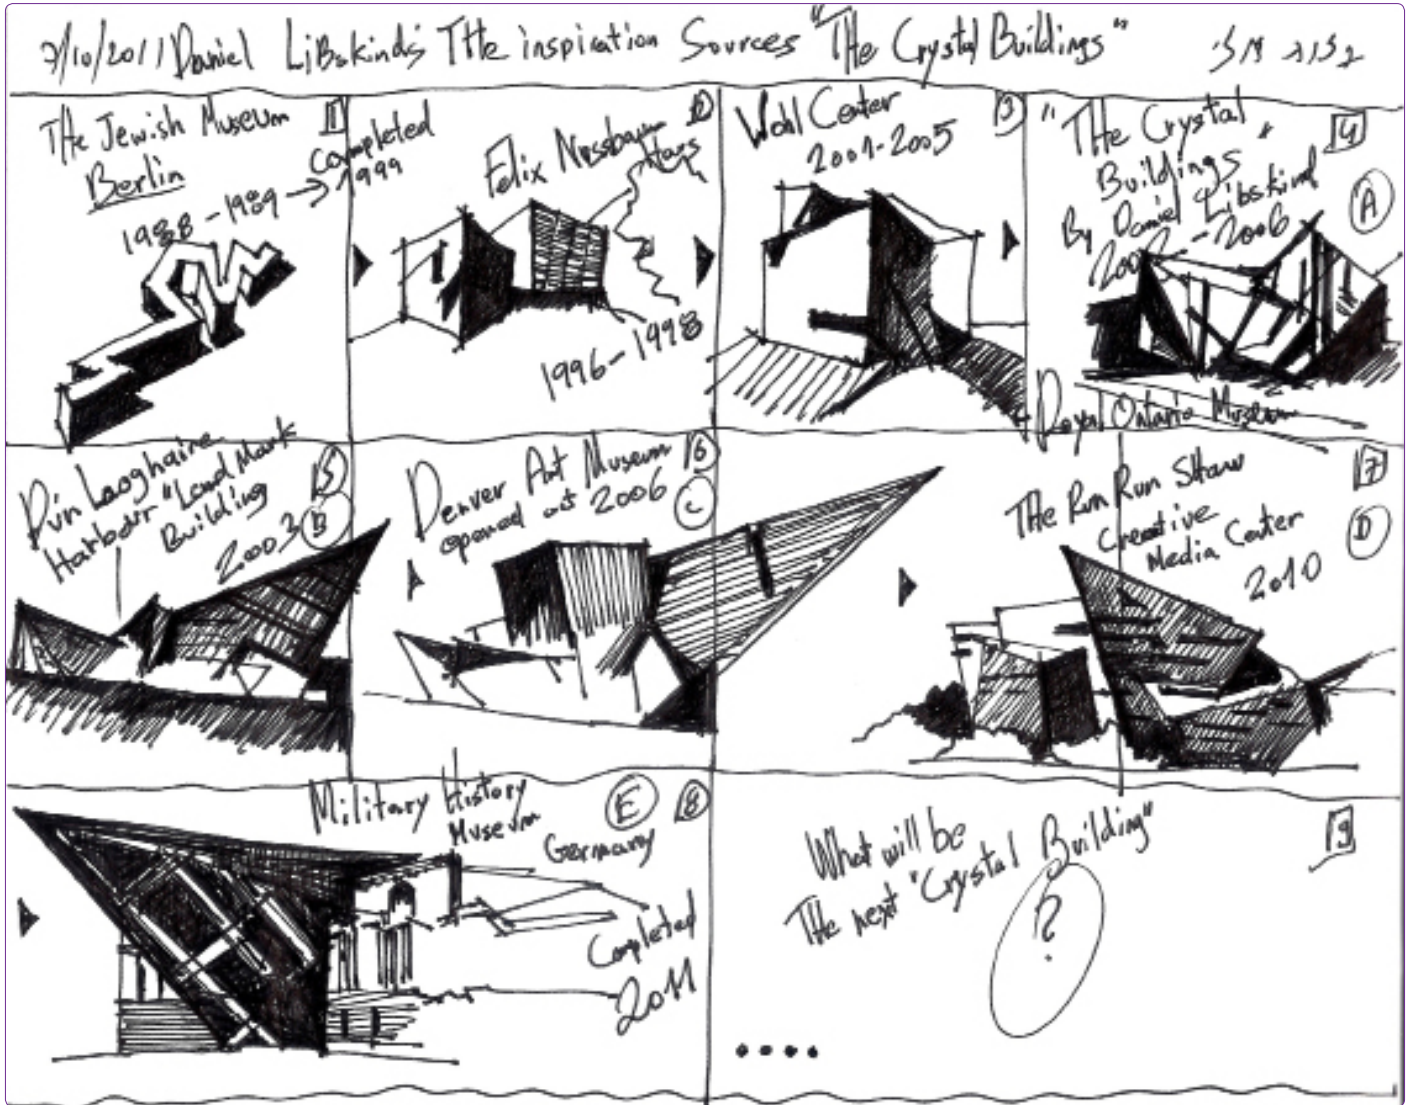 7/10/2011 Daniel Libskinds' The inspiration Sources "The Crystal Buildings"
The Jewish Museum
Berlin
1988 - 1989 → completed
1999
1
Felix Nussbaum
Haus
1996 - 1998
2
Wohl Center
2001-2005
3
"The Crystal
Buildings"
By Daniel Libskind
- 2006
4
A
Royal Ontario Museum
Dún Laoghaire
Harbour "Land Mark
Building
2003
5
B
Denver Art Museum
opened at 2006
6
C
The Run Run Shaw
Creative
Media Center
2010
7
D
Military History
Museum
Germany
Completed
2011
E
8
What will be
The next "Crystal Building"
?
9
....